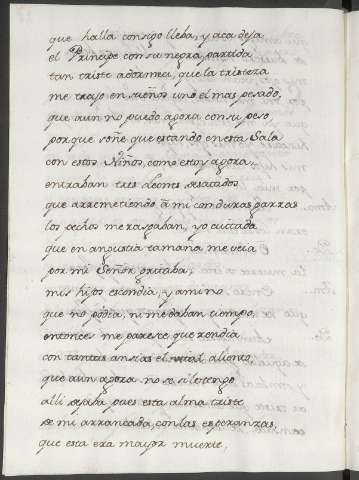 que halla consigo lleba, y aca deja
el Principe con su negra partida
tan triste adormeci, que la tristeza
me trajo en sueños uno el mas pesado,
que aun no puedo agora con su peso
porque soñe que estando en esta Sala
con estos Niños, como estoy agora,
entraban tres Leones desatados
que arremetiendo a mi con duras garras
los pechos me rasgaban, yo cuitada
que en angustia tamaña me veia
por mi Señor gritaba,
mis hijos escondia, y a mi no
que no podia, ni me daban tiempo,
entonces me parese que rendia
con tantas ansias el vital aliento
que aun agora no se si letengo
alli dejaba pues esta alma triste
de mi arrancada, con las esperanzas,
que esta era mayor muerte,